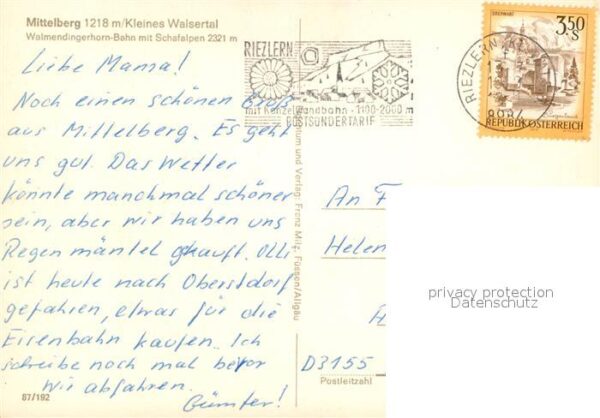 Mittelberg 1218 m/Kleines Walsertal
Walmendingerhorn-Bahn mit Schafalpen 2321 m
Liebe Mama!
Noch einen schönen Gruß
aus Mittelberg. Es geht
uns gut. Das Wetter
könnte manchmal schöner
sein, aber wir haben uns
Regenmäntel gekauft. Olli
ist heute nach Oberstdorf
gefahren, etwas für die
Eisenbahn kaufen. Ich
schreibe noch mal bevor
wir abfahren.
Günter!
87/192
RIEZLERN
mit Kanzelwandbahn · 1100-2000 m
POSTSONDERTARIF
und Verlag: Franz Milz, Füssen/Allgäu
RIEZLERN
3.50
S
REPUBLIK ÖSTERREICH
An F
Helen
D3155
Postleitzahl
privacy protection
Datenschutz